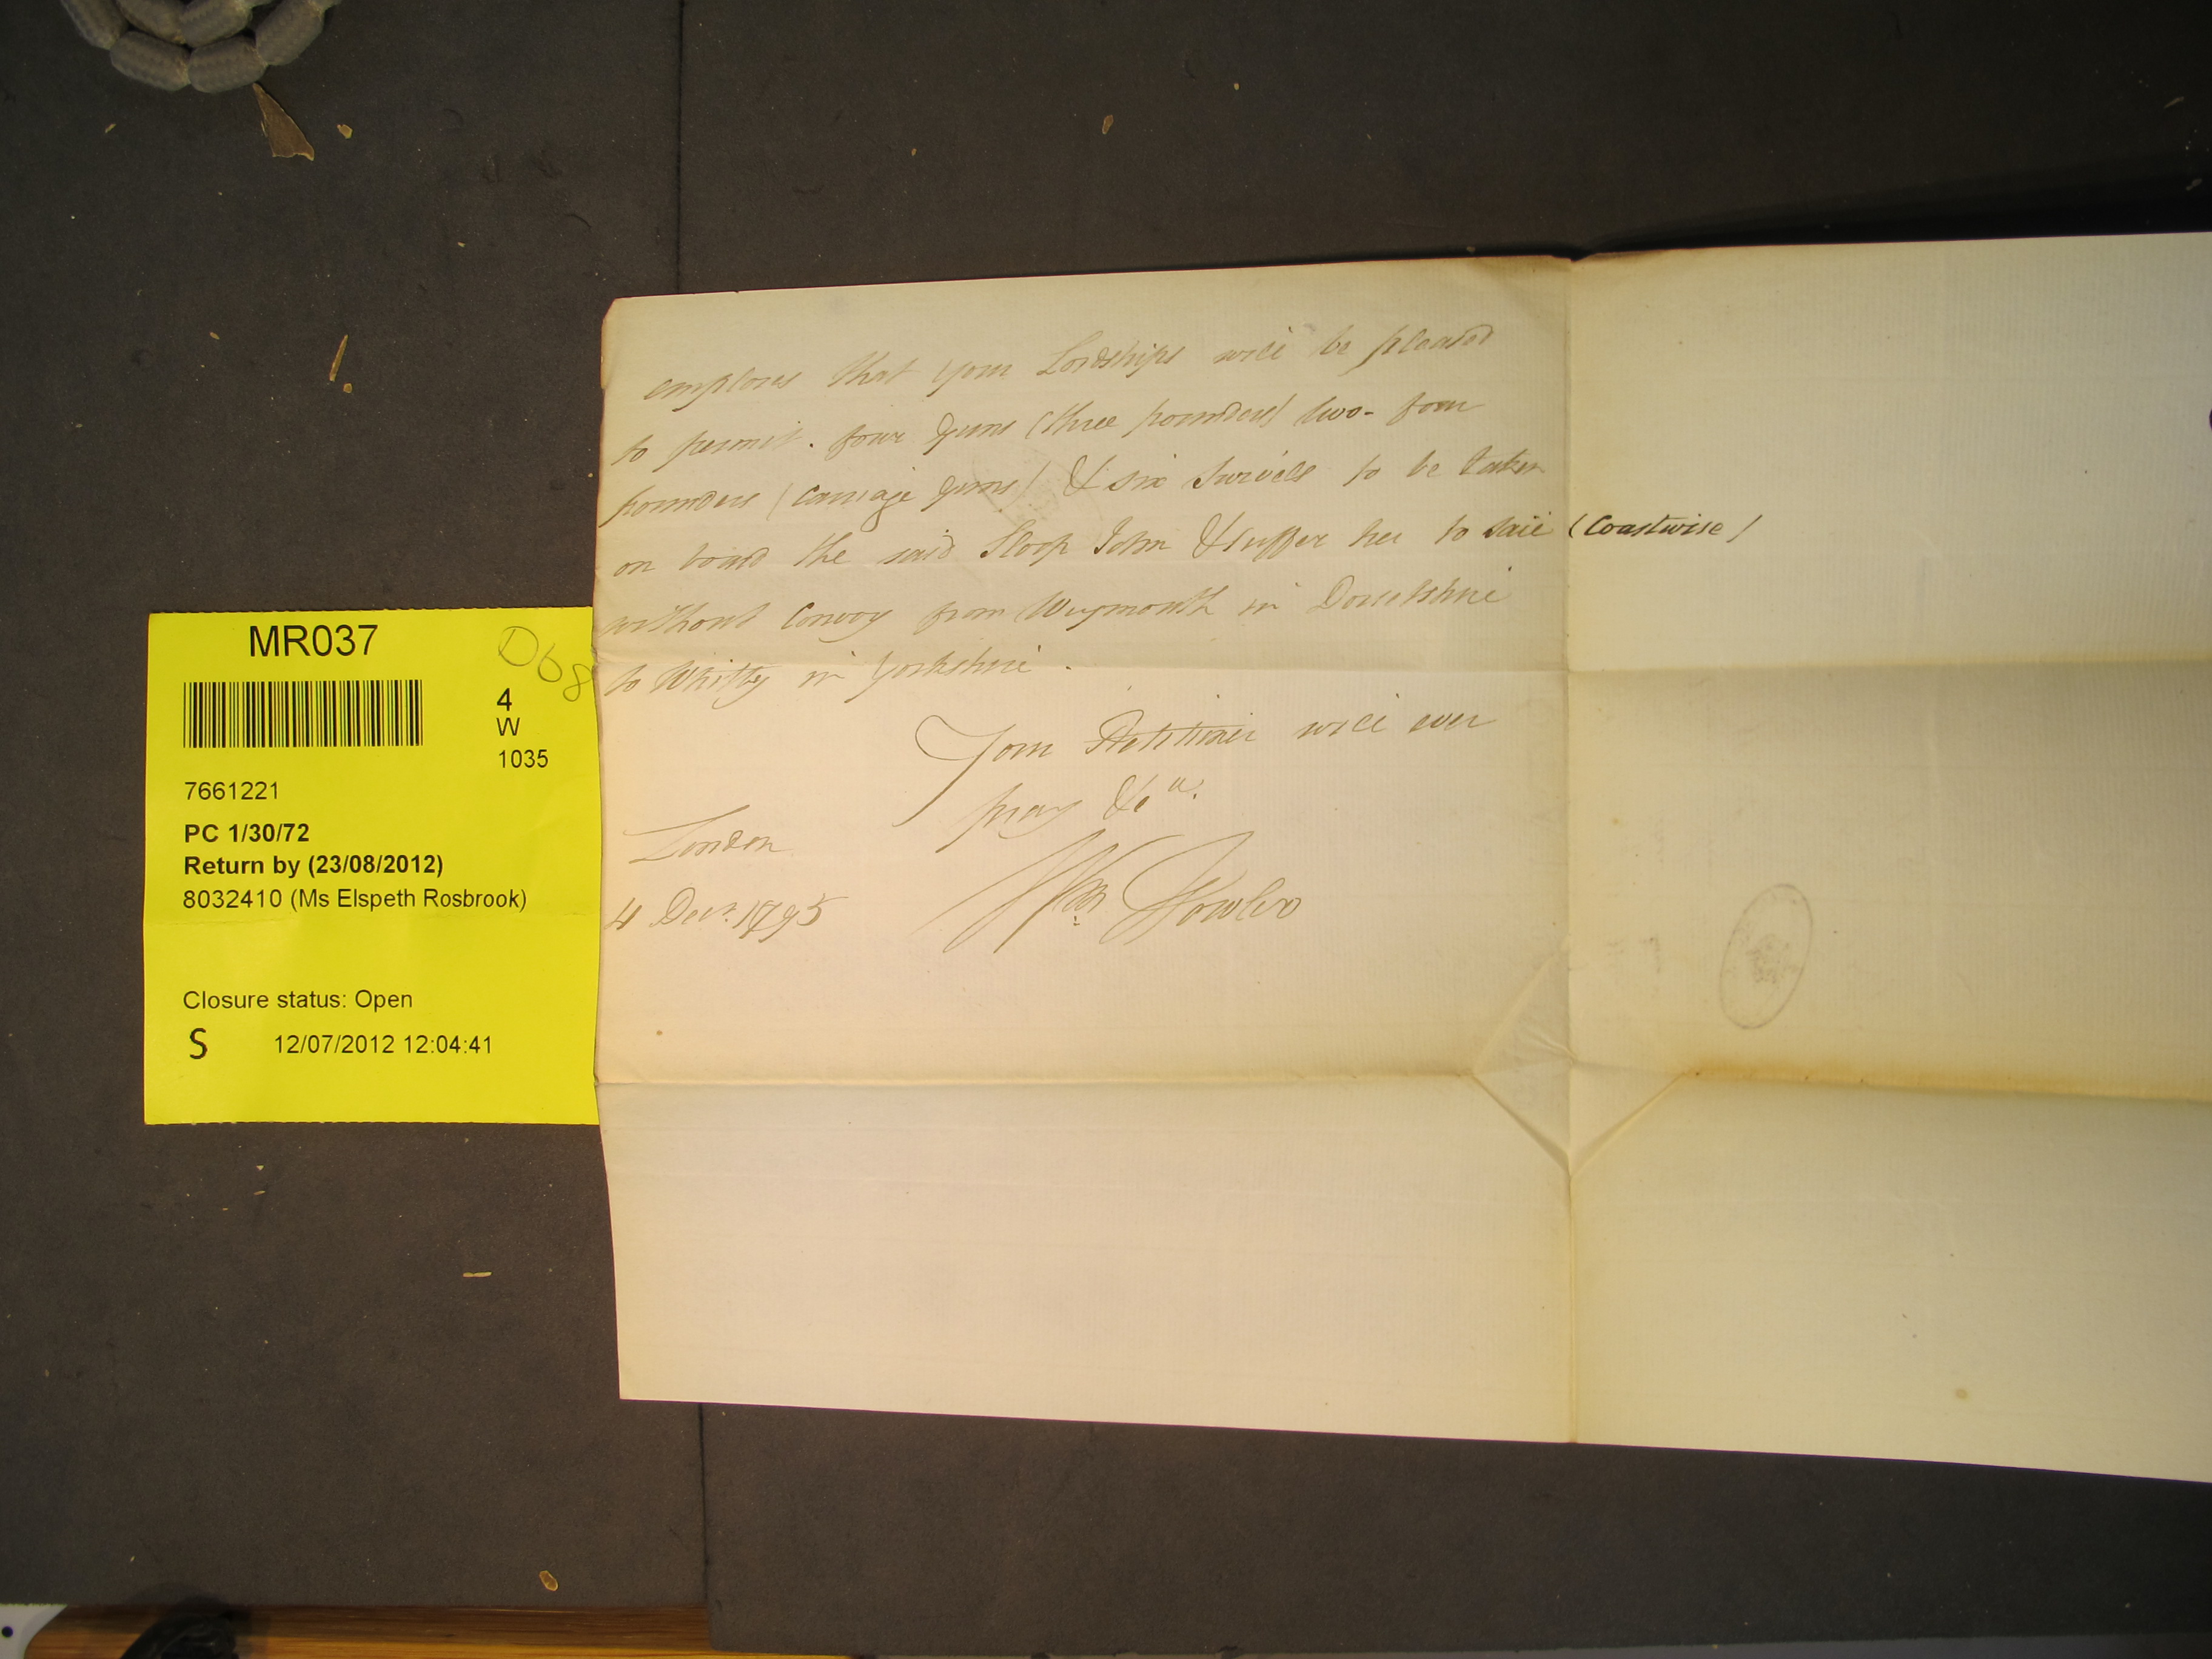 MR037
D68
4
W
1035
7661221
PC 1/30/72
Return by (23/08/2012)
8032410 (Ms Elspeth Rosbrook)
Closure status: Open
S 12/07/2012 12:04:41
emplores that your Lordships will be pleased
to permit. four Guns (three pounders) two- four
pounders (Carriage guns) & six Swivels to be taken
on board the said Sloop John & suffer her to sail (Coastwise)
without Convoy from Weymouth in Dorsetshire
to Whitby in Yorkshire.
Your Petitioner will ever
pray &ca.
London
4 Decr. 1795
Wm Fowler